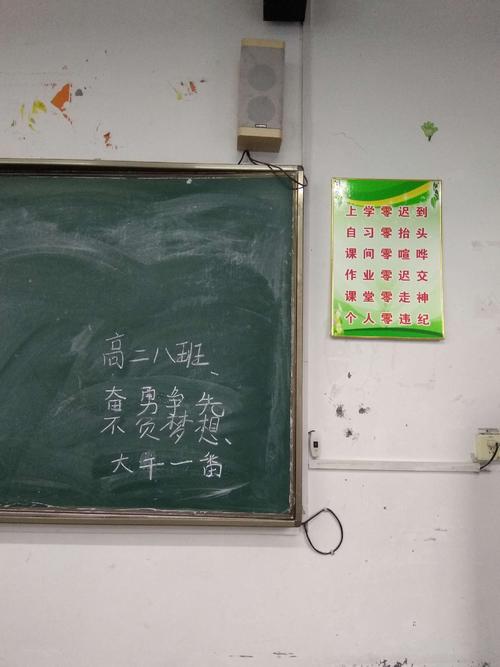 高二八班、
奋勇争先
不负梦想、
大干一番
上学零迟到
自习零抬头
课间零喧哗
作业零迟交
课堂零走神
个人零违纪